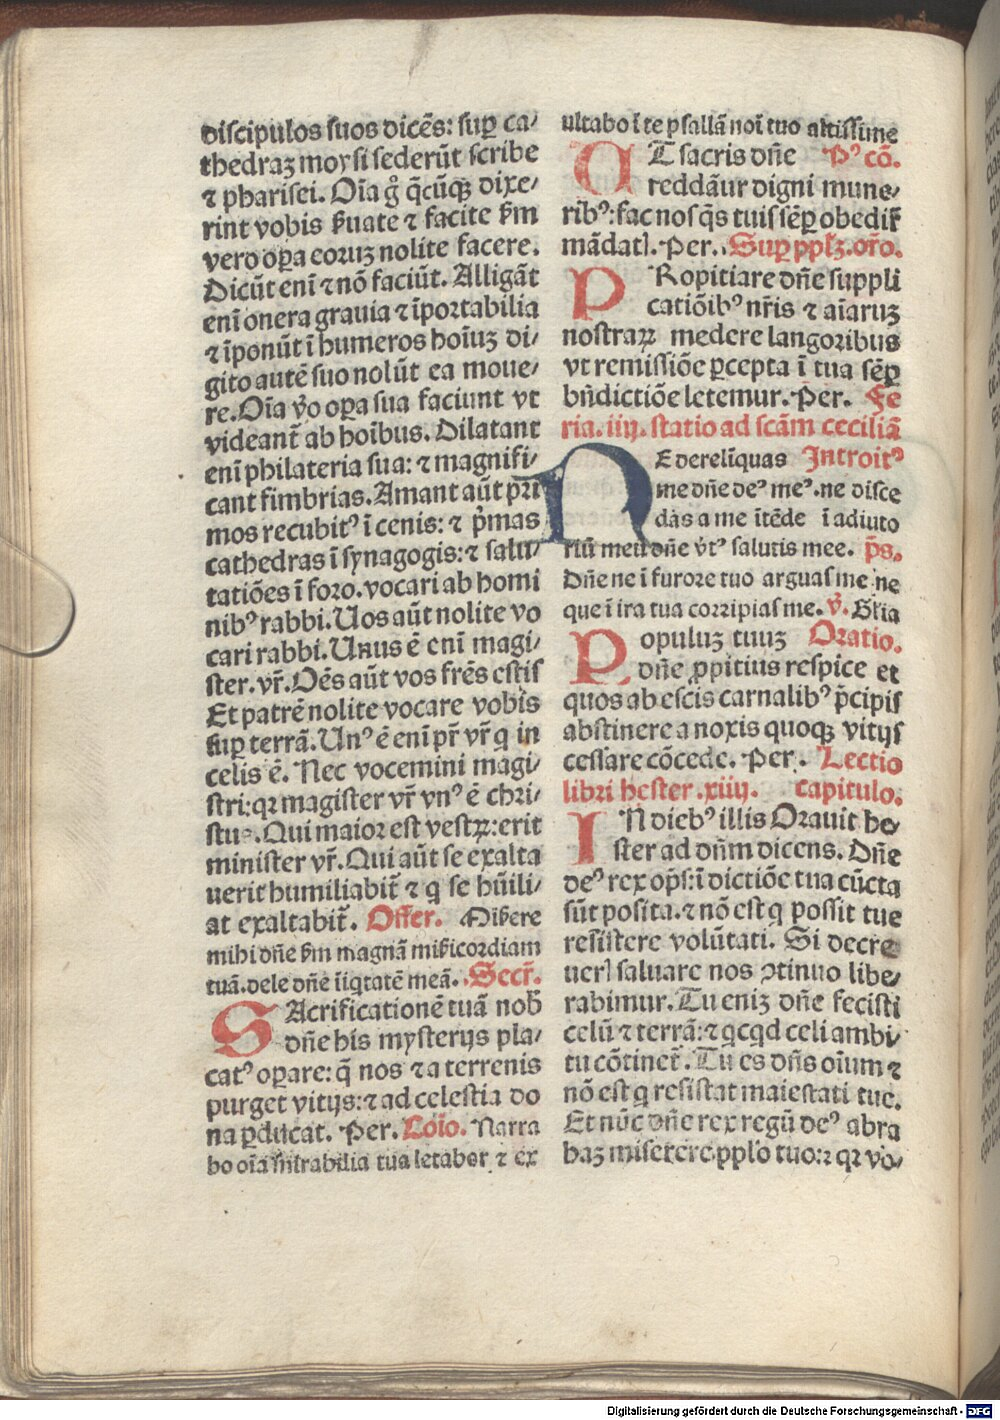 discipulos suos dicēs: suꝑ ca/
thedraʒ moysi sederūt scribe
⁊ pharisei. Oīa g̊ q̄cūqʒ dixe/
rint vobis ẜuate ⁊ facite ẜm
vero oꝑa eoruʒ nolite facere.
Dicūt eni ⁊ nō faciūt. Alligāt
enī onera grauia ⁊ īportabilia
⁊ īponūt ī humeros hoīuʒ di/
gito autē suo nolūt ea moue/
re. Oīa v̊o oꝑa sua faciunt vt
videant̄ ab hoībus. Dilatant
enī philateria sua: ⁊ magnifi/
cant fimbrias. Amant aūt pri
mos recubitꝰ ī cenis: ⁊ p̄mas
cathedras ī synagogis: ⁊ salu/
tatiōes ī foro. vocari ab homi
nibꝰ rabbi. Uos aūt nolite vo
cari rabbi. Unus ē enī magi/
ster. vr̄. Oēs aūt vos frēs estis
Et patrē nolite vocare vobis
suꝑ terrā. Unꝰ ē enī pr̄ vr̄ q in
celis ē. Nec vocemini magi/
stri: qꝛ magister vr̄ vnꝰ ē chri/
stus. Qui maior est vestꝝ: erit
minister vr̄. Qui aūt se exalta
uerit humiliabit̄ ⁊ q se hūili/
at exaltabit̄. Offer. Miẜere
mihi dn̄e ẜm magnā miẜicordiam
tuā. dele dn̄e īiqtatē meā. Secr̄.
SAcrificationē tuā nob̄
dn̄e his mysterijs pla/
catꝰ oꝑare: q̄ nos ⁊ a terrenis
purget vitijs: ⁊ ad celestia do
na ꝑducat. Per. Cōīo. Narra
bo oīa mirabilia tua letabor ⁊ ex
ultabo ī te psallā noī tuo altissime
UT sacris dn̄e Pꝰ cō.
reddāur digni mune/
ribꝰ: fac nos q̄s tuis sēꝑ obedir̄
mādatꝭ. Per. Suꝑ pplꝫ. or̄o.
PRopitiare dn̄e suppli
catiōibꝰ nr̄is ⁊ aīaruʒ
nostraꝝ medere langoribus
vt remissiōe ꝑcepta ī tua sēꝑ
bn̄dictiōe letemur. Per. Fe
ria. iiij. statio ad scām ceciliā
NE derelīquas Introitꝰ
me dn̄e deꝰ meꝰ. ne disce
das a me ītēde ī adiuto
riū meū dn̄e v̊tꝰ salutis mee. p̄s.
Dn̄e ne ī furore tuo arguas me ne
que ī ira tua corripias me. v̊. Gl̄ia
Populuʒ tuuʒ Oratio.
dn̄e ꝓpitius respice et
quos ab escis carnalibꝰ p̄cipis
abstinere a noxis quoqʒ vitijs
cessare cōcede. Per. Lectio
libri hester. xiij. capitulo.
IN diebꝰ illis Orauit he/
ster ad dn̄m dicens. Dn̄e
deꝰ rex op̄s: ī dictiōe tua cūcta
sūt posita. ⁊ nō est q possit tue
resistere volūtati. Si decre
uerꝭ saluare nos ꝯtinuo libe/
rabimur. Tu eniʒ dn̄e fecisti
celū ⁊ terrā: ⁊ qcqd celi ambi/
tu cōtinet̄. Tu es dn̄s oīum ⁊
nō est q resistat maiestati tue.
Et nūc dn̄e rex regū deꝰ abra
haʒ miserere pplō tuo: ⁊ qꝛ vo/
Digitalisierung gefördert durch die Deutsche Forschungsgemeinschaft - DFG